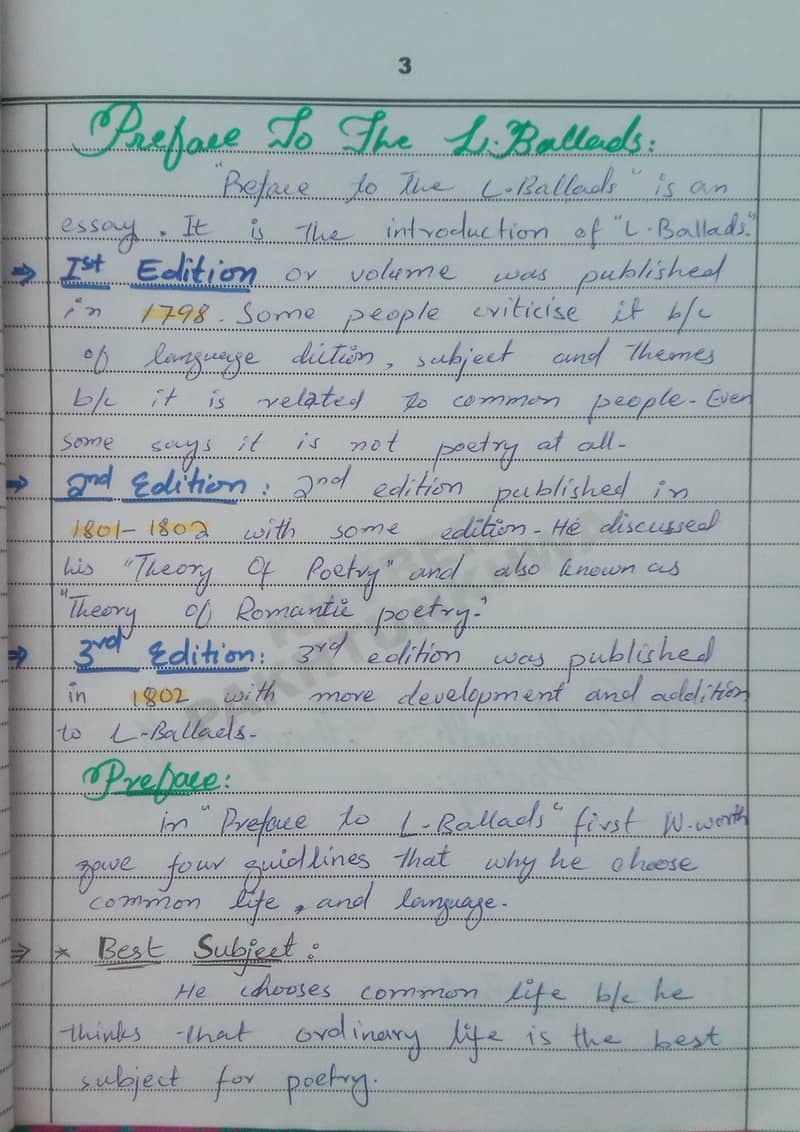 3
Preface To The L.Ballads:
"Preface to The L.Ballads" is an
essay. It is the introduction of "L.Ballads."
⇒ Ist Edition or volume was published
in 1798. Some people criticise it b/c
of language diction, subject and themes
b/c it is related to common people. Even
some says it is not poetry at all-
⇒ 2nd Edition: 2nd edition published in
1801-1802 with some edition- He discussed
his "Theory Of Poetry" and also known as
"Theory of Romantic poetry."
⇒ 3rd Edition: 3rd edition was published
in 1802 with more development and addition
to L-Ballads-
Preface:
in "Preface to L-Ballads" first W.worth
gave four guidlines that why he choose
common life, and language-
⇒ * Best Subject:
He chooses common life b/c he
thinks that ordinary life is the best
subject for poetry.